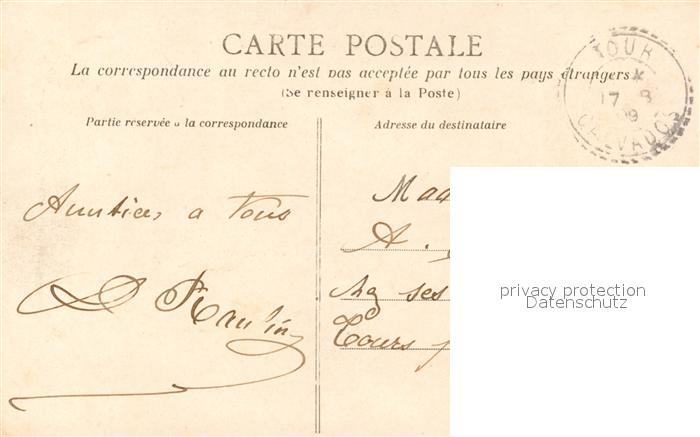 CARTE POSTALE
La correspondance au recto n'est pas acceptée par tous les pays étrangers
(Se renseigner à la Poste)
TOUR
17 8
09
CALVADOS
Partie reservée a la correspondance
Adresse du destinataire
Amitiés a tous
Mad
A.
ses
Tours
privacy protection
Datenschutz